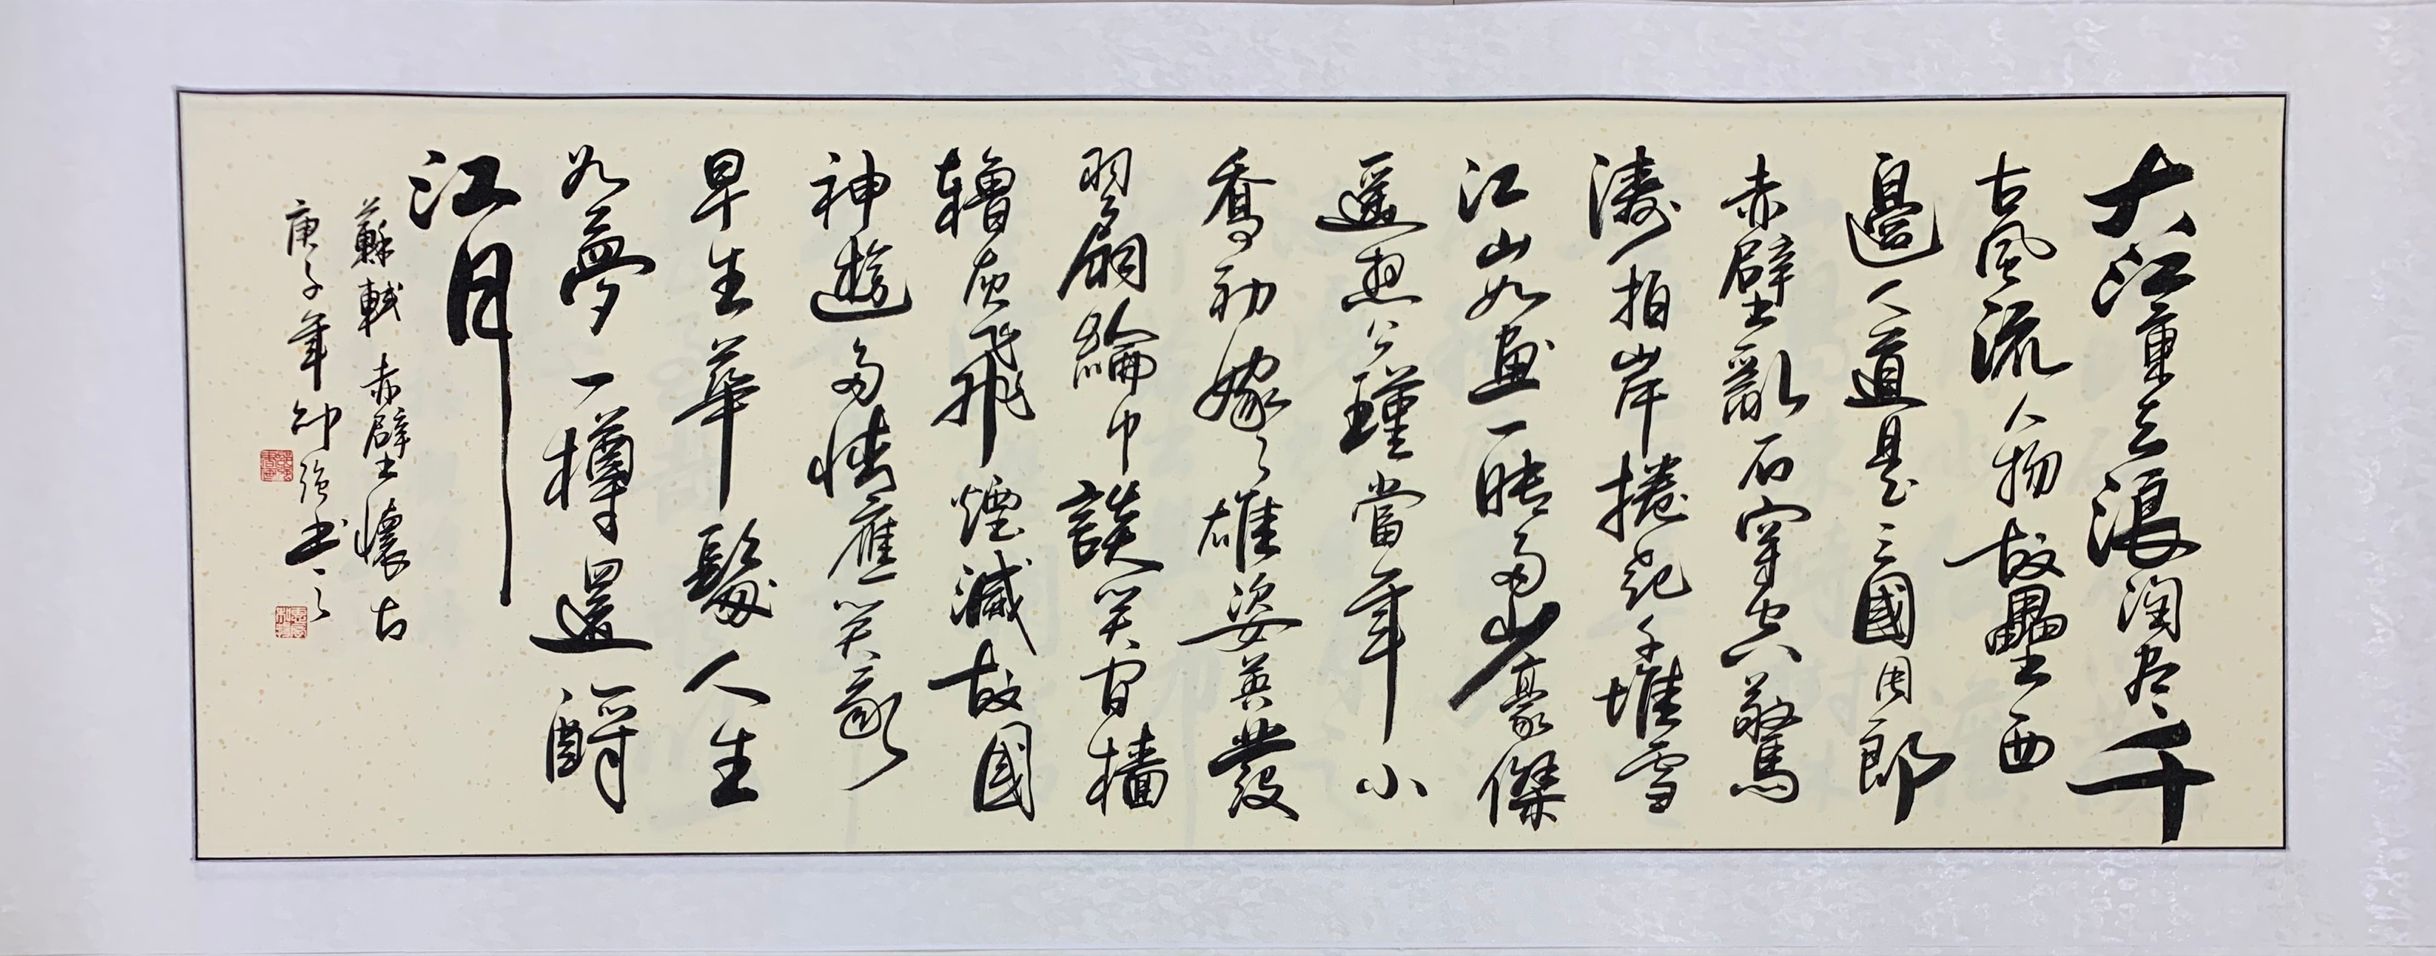 大江東去浪淘尽千
古風流人物故壘西
邊人道是三國周郎
赤壁亂石穿空驚
濤拍岸捲起千堆雪
江山如畫一時多少豪傑
遥想公瑾當年小
喬初嫁了雄姿英發
羽扇綸巾談笑間檣
灰飛煙滅故國
神遊多情應笑我
早生華髮人生
如夢一樽還酹
江月
蘇軾赤壁懷古
庚子年强书之